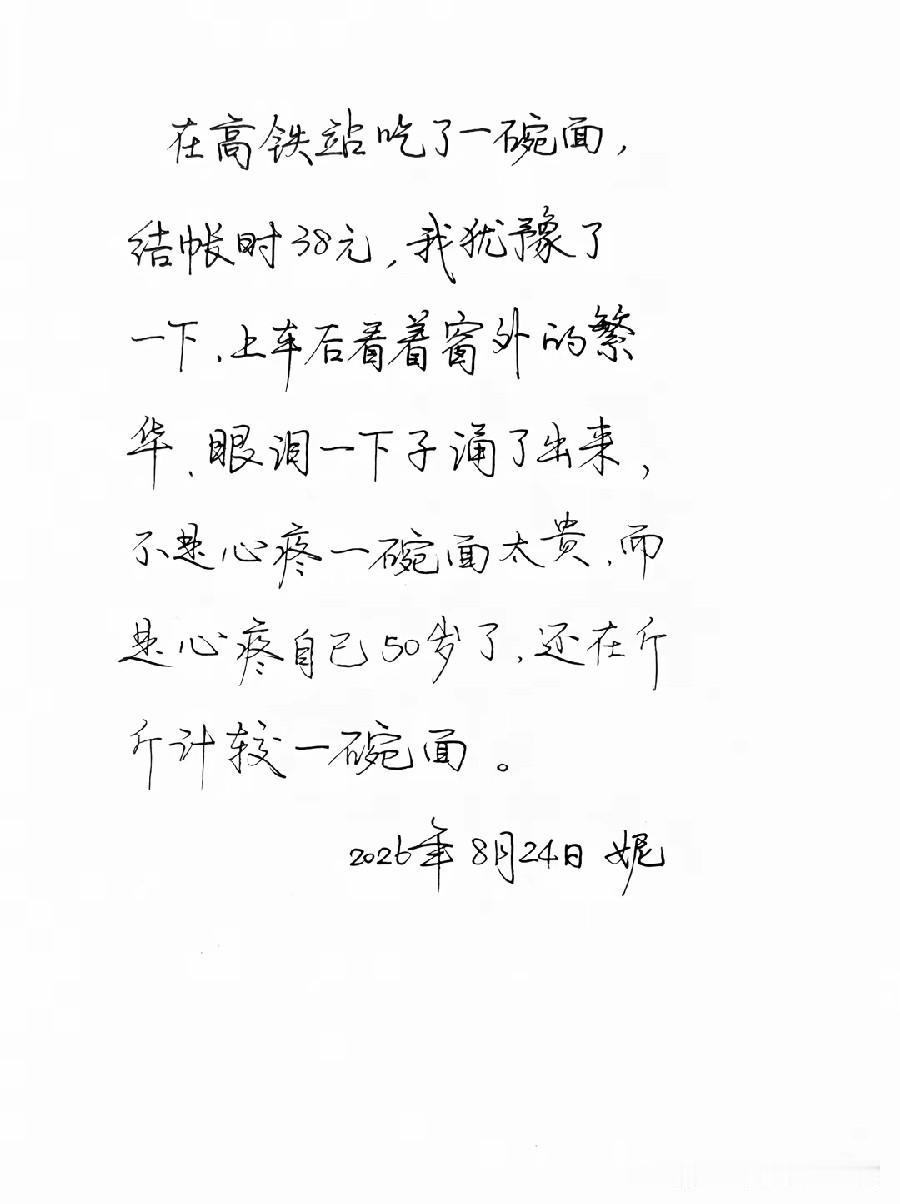 在高铁站吃了一碗面，
结帐时38元，我犹豫了
一下，上车后看着窗外的繁
华、眼泪一下子涌了出来，
不是心疼一碗面太贵，而
是心疼自己50岁了，还在斤
斤计较一碗面。
2026年8月24日 妮